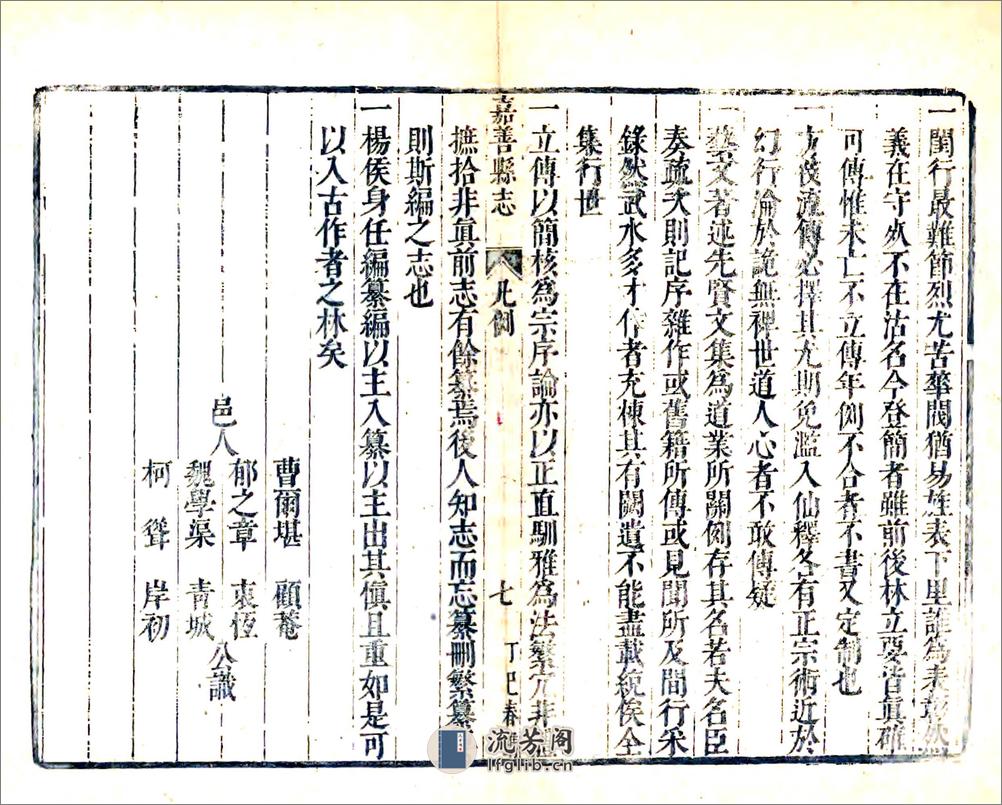 一閨行最難節烈尤苦華閥猶易旌表下里誰為表彰然
義在守貞不在沽名今登簡者雖前後林立要皆眞確
可傳惟未亡不立傳年例不合者不書又定制也
一方技流傳必擇其尤期免濫入仙釋各有正宗術近於
幻行淪於詭無裨世道人心者不敢傳疑
一藝文著述先賢文集為道業所關例存其名若夫名臣
奏疏次則記序雜作或舊籍所傳或見聞所及間行采
錄然武水多才作者充棟其有闕遺不能盡載統俟全
集行世
一立傳以簡核為宗序論亦以正直馴雅為法繁冗非
嘉善縣志
凡例
七
丁巳春
摭拾非眞前志有餘纂焉後人知志而忘纂刪繁纂
則斯編之志也
一楊侯身任編纂編以主入纂以主出其愼且重如是可
以入古作者之林矣
曹爾堪 顧菴
邑人
郁之章 衷恆
魏學渠 青城
公識
柯聳 岸初
流芳阁
lfglib.cn